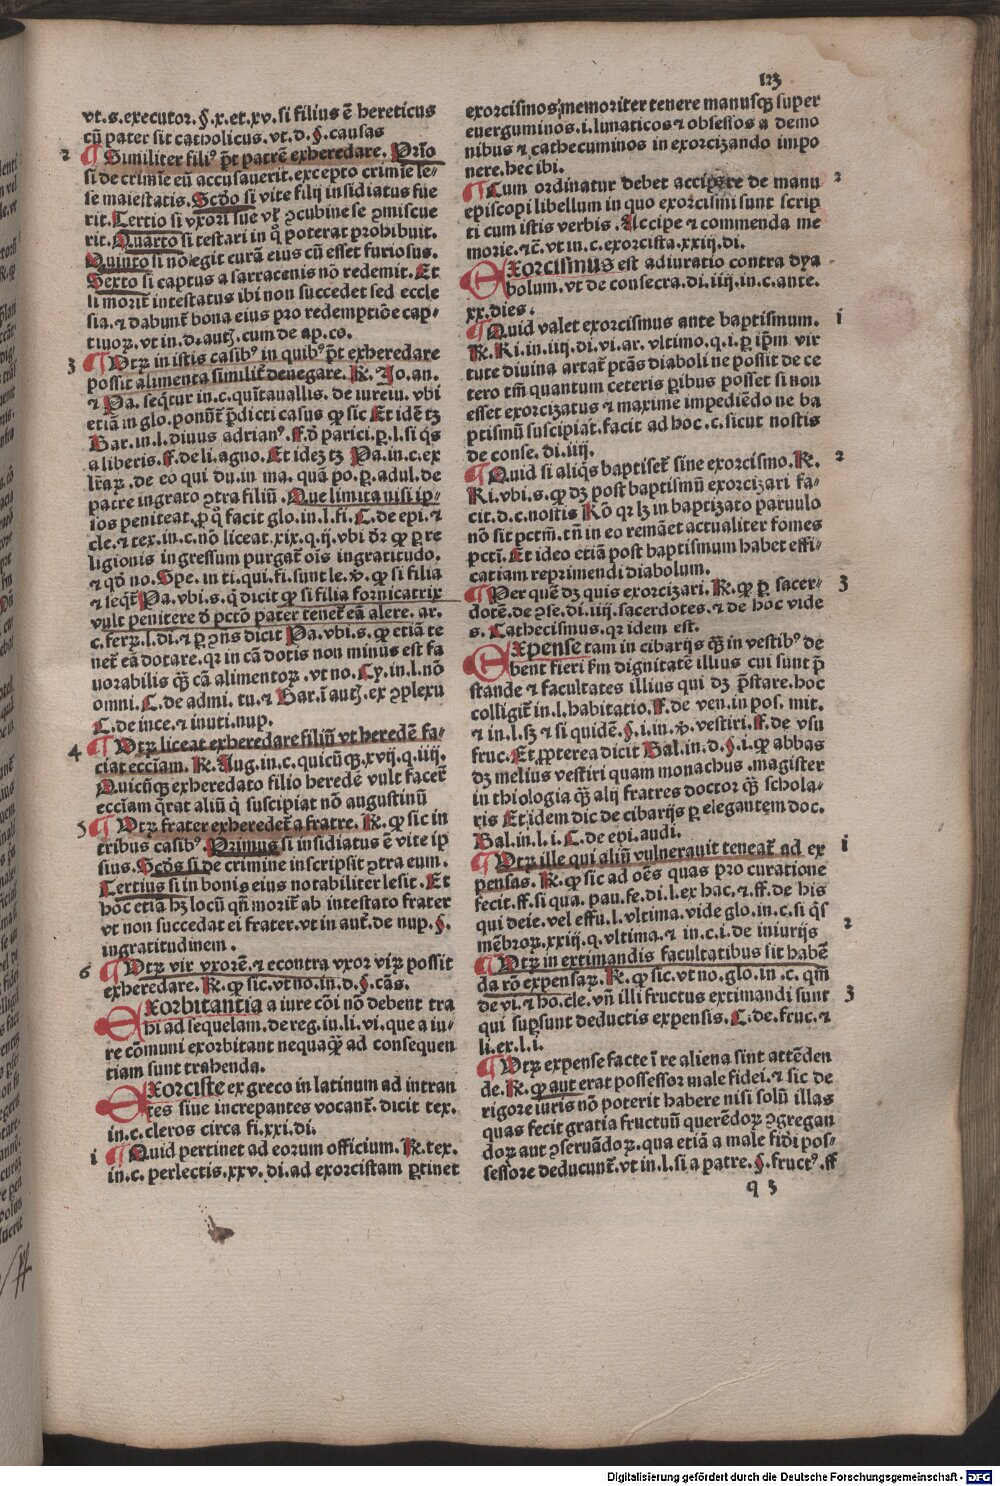 123
vt.s.executor.§.x.et.xv.si filius ē hereticus
cū pater sit catholicus.vt.d.§.causas
2 ¶ Similiter filiꝰ p̄t patrē exheredare. Prīo
si de crimīe eū accusauerit.excepto crimīe le⸗
se maiestatis. Scd̄o si vite filij insidiatus fue
rit. Tertio si vxori sue vl̓ ꝯcubine se ꝯmiscue
rit. Quarto si testari in qͦ poterat prohibuit.
Quinto si nō egit curā eius cū esset furiosus.
Sexto si captus a sarracenis nō redemit. Et
li morit̄ intestatus ibi non succedet sed eccle
sia.⁊ dabunt̄ bona eius pro redemptiōe cap⸗
tiuoꝝ.vt in.d.autḣ.cum de ap.co.
3 ¶ Vtꝝ in istis casibꝰ in quibꝰ p̄t exheredare
possit alimenta similit̄ denegare. R̄. Jo.an.
⁊ Pa.seqͥtur in.c.quītauallis.de iureiu.vbi
etiā in glo.ponūt̄ p̄dicti casus ꝙ sic Et idē tꝫ
Bar.in.l.diuus adrianꝰ.ff.d̓ parici.ꝑ.l.si qͥs
a liberis.ff.de li.agno. Et ideꝫ tꝫ Pa.in.c.ex
lr̄aꝝ.de eo qui du.in ma.quā po.ꝑ.adul.de
patre ingrato ꝯtra filiū. Que limita nisi ip⸗
sos peniteat.ꝑ qͦ facit glo.in.l.fi. C.de epi.⁊
cle.⁊ tex.in.c.nō liceat.xix.q.ij.vbi d̄r ꝙ ꝑ re
ligionis ingressum purgat̄ oīs ingratitudo.
⁊ qd̓ no. Spe.in ti.qui.fi.sunt le.ꝟ.ꝙ si filia
⁊ seqͥt̄ Pa.vbi.s.q̇ dicit ꝙ si filia fornicatrix
vult penitere d̓ pctō pater tenet̄ eā alere.ar.
c.ferꝝ.l.di.⁊ ꝑ ꝯn̄s dicit Pa.vbi.s.ꝙ etiā te
net̄ eā dotare.qꝛ in cā dotis non minus est fa
uorabilis qꝫ̄ cā alimentoꝝ.vt no. Cy.in.l.nō
omni. C.de admi.tu.⁊ Bar.ī autḣ.ex ꝯplexu
C.de ince.⁊ inuti.nup.
4 ¶ Vtꝝ liceat exheredare filiū vt heredē fa⸗
ciat eccīam. R̄. Aug.in.c.quicūqꝫ.xvij.q.iiij.
Quicūqꝫ exheredato filio heredē vult facere̅
eccīam q̄rat aliū q̇ suscipiat nō augustinū
5 ¶ Vtꝝ frater exheredet̄ a fratre. R̄.ꝙ sic in
tribus casibꝰ. Primus si insidiatus ē vite ip
sius. Scd̓s si de crimine inscripsit ꝯtra eum.
Tertius si in bonis eius notabiliter lesit. Et
hoc etiā hꝫ locū qn̄ morit̄ ab intestato frater
vt non succedat ei frater.vt in aut̄.de nup.§.
ingratitudinem.
6 ¶ Vtꝝ vir vxorē.⁊ econtra vxor viꝝ possit
exheredare. R̄.ꝙ sic.vt no.in.d.§.cās.
Exorbitantia a iure cōi nō debent tra
hi ad sequelam.de reg.iu.li.vi.que a iu⸗
re cōmuni exorbitant nequaqꝫ̄ ad consequen
tiam sunt trahenda.
Exorciste ex greco in latinum ad intran
tes siue increpantes vocant̄.dicit tex.
in.c.cleros circa fi.xxi.di.
i ¶ Quid pertinet ad eorum officium. R̄.tex.
in.c.perlectis.xxv.di.ad exorcistam ꝑtinet
exorcismos memoriter tenere manusqꝫ super
euerguminos.i.lunaticos ⁊ obsessos a demo
nibus ⁊ cathecuminos in exorcizando impo
nere.hec ibi.
¶ Cum ordinatur debet accipere de manu 2
episcopi libellum in quo exorcismi sunt scrip
ti cum istis verbis. Accipe ⁊ commenda me
morie.⁊c̄.vt in.c.exorcista.xxiij.di.
Exorcismus est adiuratio contra dya
bolum.vt de consecra.di.iiij.in c.ante.
xx.dies.
¶ Quid valet exorcismus ante baptismum. i
R̄. Ri.in.iiij.di.vi.ar.vltimo.q.i.ꝑ ip̄m vir
tute diuina artat̄ ptās diaboli ne possit de ce
tero tm̄ quantum ceteris ꝑibus posset si non
esset exorcizatus ⁊ maxime impediēdo ne ba
ptismū suscipiat.facit ad hoc.c.sicut nostis
de conse.di.iiij.
¶ Quid si aliqͥs baptiset̄ sine exorcismo. R̄. 2
Ri.vbi.s.ꝙ dꝫ post baptismū exorcizari fa⸗
cit.d.c.nostis Rō qꝛ lꝫ in baptizato paruulo
nō sit pctm̄.tn̄ in eo remāet actualiter fomes
pctī. Et ideo etiā post baptismum habet effi⸗
catiam reprimendi diabolum.
¶ Per quē dꝫ quis exorcizari. R̄.ꝙ ꝑ sacer⸗ 3
dotē.de ꝯse.di.iiij.sacerdotes.⁊ de hoc vide
s. Cathecismus.qꝛ idem est.
Expense tam in cibarijs qꝫ̄ in vestibꝰ de
bent fieri ẜm dignitatē illius cui sunt p̄
stande ⁊ facultates illius qui dꝫ p̄stare.hoc
colligit̄ in.l.habitatio.ff.de ven.in pos.mit.
⁊ in.l.sꝫ ⁊ si quidē.§.i.in.ꝟ.vestiri.ff.de vsu
fruc. Et ꝓpterea dicit Bal.in.d.§.i.ꝙ abbas
dꝫ melius vestiri quam monachus.magister
in thiologia qꝫ̄ alij fratres doctor qꝫ̄ schola⸗
ris Et idem dic de cibarijs ꝑ elegantem doc.
Bal.in.l.i. C.de epi.audi.
¶ Vtꝝ ille qui aliū vulnerauit teneat̄ ad ex i
pensas. R̄.ꝙ sic ad oēs quas pro curatione
fecit.ff.si qua.pau.fe.di.l.ex hac.⁊.ff.de his
qui deie.vel effu.l.vltima.vide glo.in.c.si qͥs
mēbroꝝ.xxiij.q.vltima.⁊ in.c.i.de iniurijs 2
¶ Vtꝝ in extimandis facultatibus sit habē
da rō expensaꝝ. R̄.ꝙ sic.vt no.glo.in.c.qm̄
de vi.⁊ ho.cle.vn̄ illi fructus extimandi sunt 3
qui suꝑsunt deductis expensis. C.de.fruc.⁊
li.ex.l.i.
¶ Vtꝝ expense facte ī re aliena sint attēden
de. R̄.ꝙ aut erat possessor male fidei.⁊ sic de
rigore iuris nō poterit habere nisi solū illas
quas fecit gratia fructuū querēdoꝝ ꝯgregan
doꝝ aut ꝯseruādoꝝ.qua etiā a male fid̓i pos⸗
sessore deducunt̄.vt in.l.si a patre.§.fructꝰ.ff
q 3
Digitalisierung gefördert durch die Deutsche Forschungsgemeinschaft - DFG